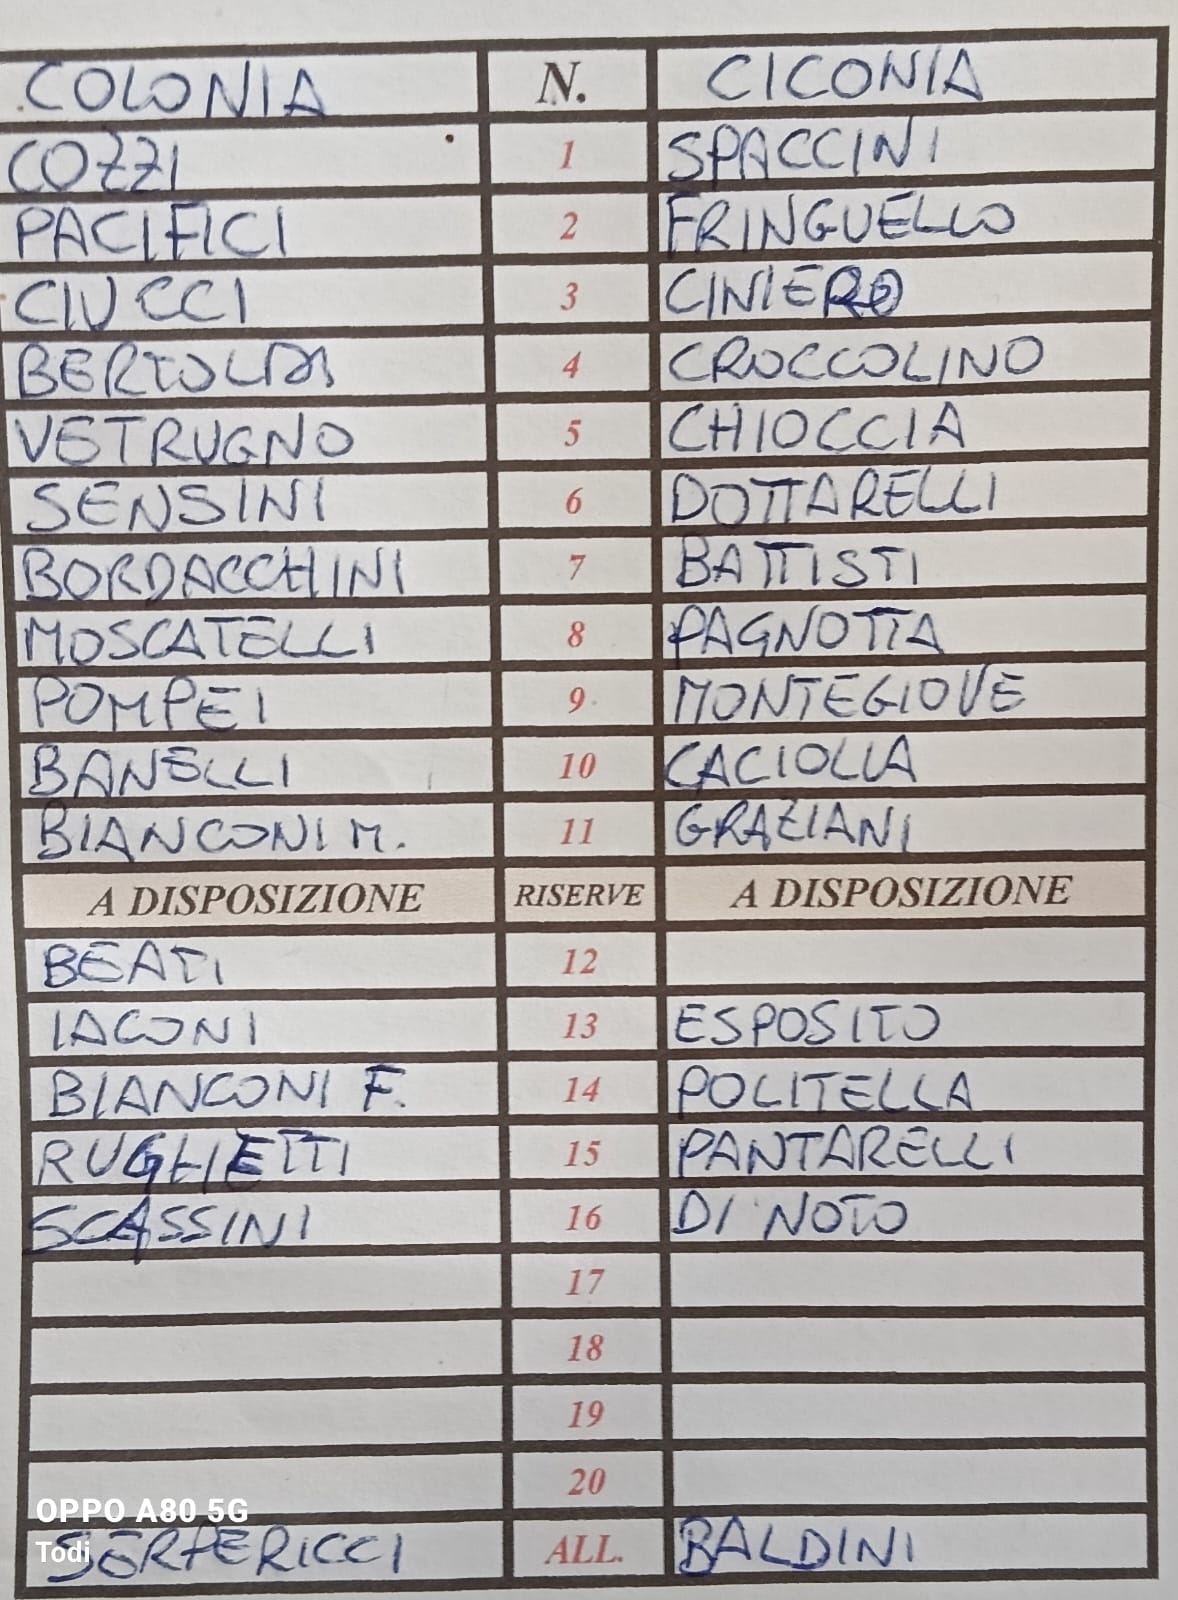 COLONIA N. CICONIA
COZZI 1 SPACCINI
PACIFICI 2 FRINGUELLO
CIUCCI 3 CINIERO
BERTOLDI 4 CROCCOLINO
VETRUGNO 5 CHIOCCIA
SENSINI 6 DOTTARELLI
BORDACCHINI 7 BATTISTI
MOSCATELLI 8 PAGNOTTA
POMPEI 9 MONTEGIOVE
BANELLI 10 CACIOLLA
BIANCONI M. 11 GRAZIANI
A DISPOSIZIONE RISERVE A DISPOSIZIONE
BEATI 12
IACONI 13 ESPOSITO
BIANCONI F. 14 POLITELLA
RUGHETTI 15 PANTARELLI
SCASSINI 16 DI NOTO
17
18
19
20
OPPO A80 5G
Todi
SERPERICCI ALL. BALDINI